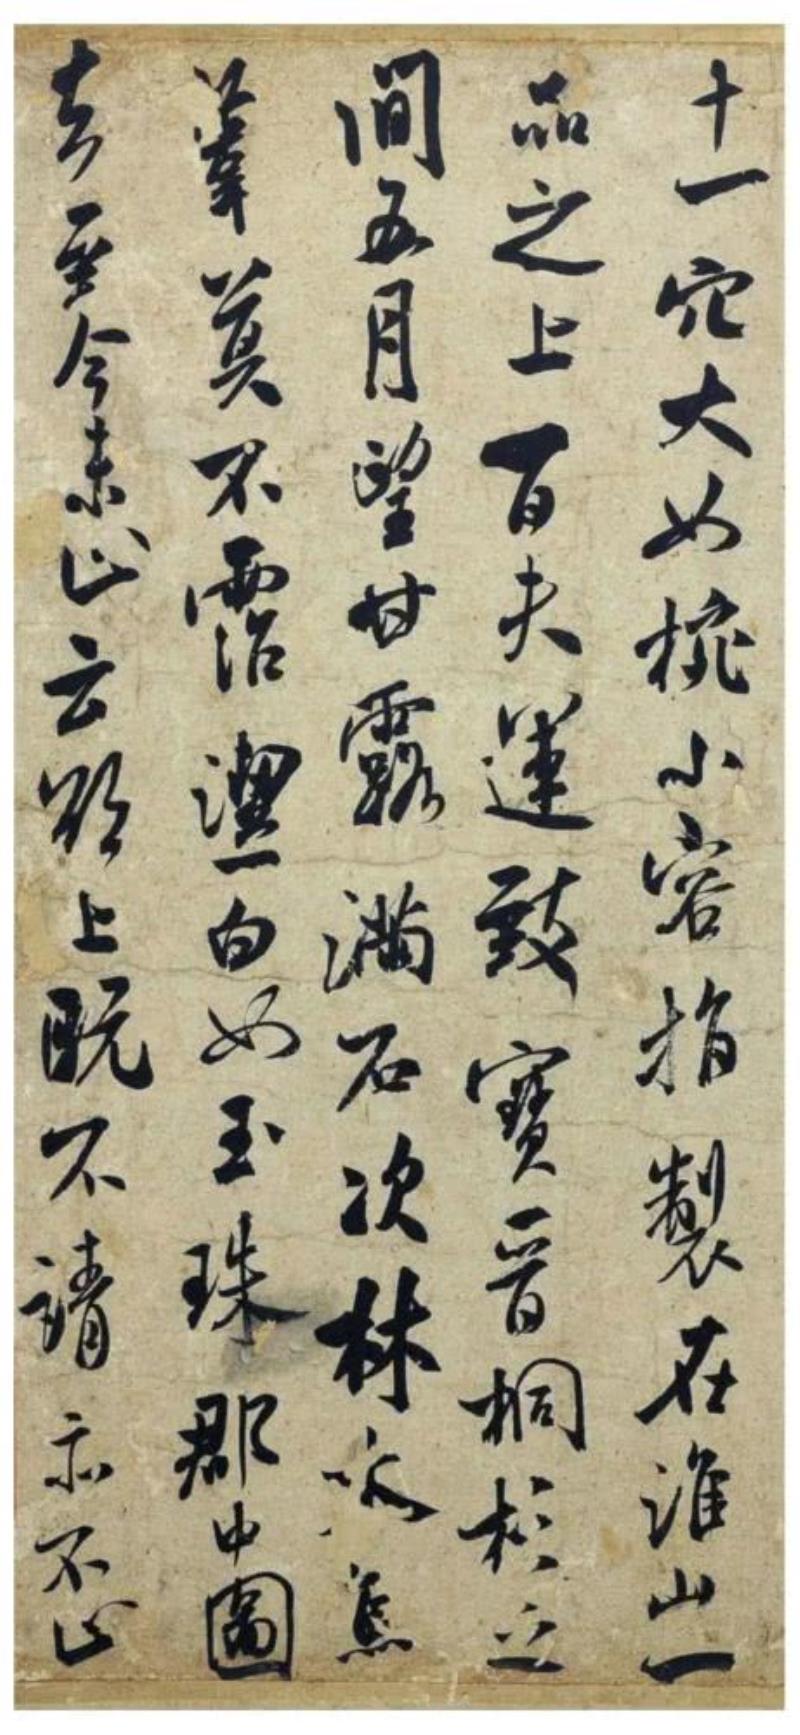 十一穴大如椀小容指製在淮山一
品之上百夫運致寶晉桐杉之
間五月望甘露滿石次林木焦
葦莫不霑潔白如玉珠郡中圖
去至今未止云欲上既不請亦不止